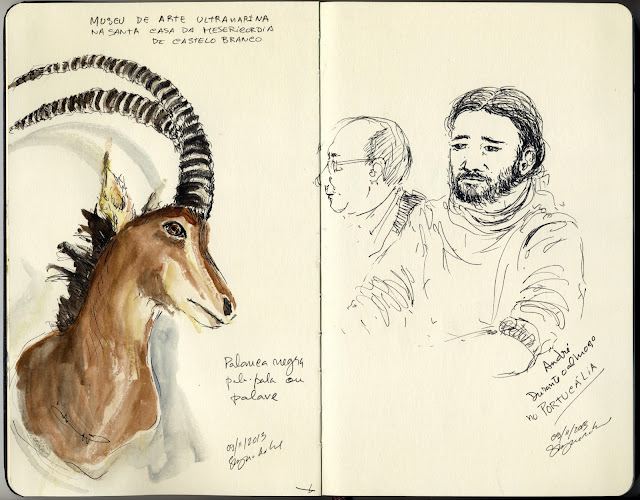 MUSEU DE ARTE ULTRAMARINA
NA SANTA CASA DA MESERICORDIA
DE CASTELO BRANCO
Palanca negra
pala-pala ou
palave
09/11/2013
André
Durante o almoço
no PORTUCÁLIA
09/11/2013